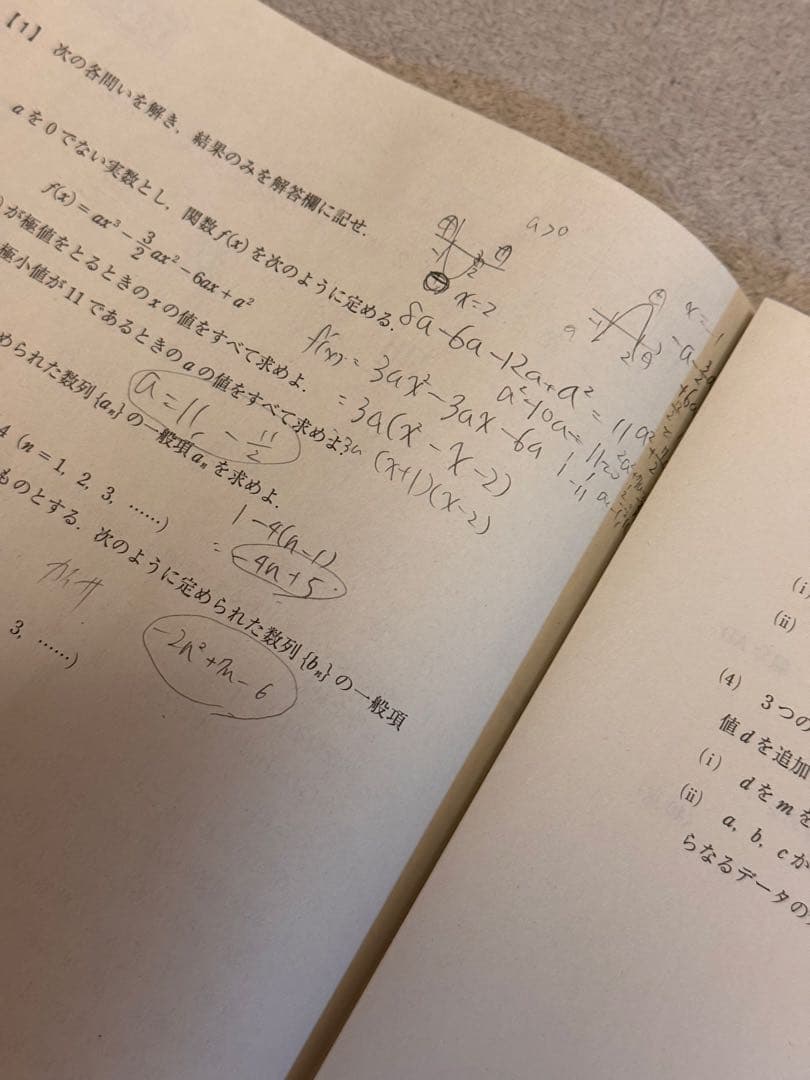 【1】 次の各問いを解き，結果のみを解答欄に記せ．
aを0でない実数とし，関数f(x)を次のように定める．
f(x)＝ax³－3/2ax²－6ax＋a²
が極値をとるときのxの値をすべて求めよ．
極小値が11であるときのaの値をすべて求めよ．
められた数列{aₙ}の一般項aₙを求めよ．
4 (n＝1, 2, 3, ……)
ものとする．次のように定められた数列{bₙ}の一般項
3, ……)
a>0
x=2
8a-6a-12a+a²=11
f'(x)=3ax²-3ax-6a
=3a(x²-x-2)
(x+1)(x-2)
a=11, -11/2
1-4(n-1)
=-4n+5
-2n²+7n-6
(i)
(ii)
(4) 3つの
値dを追加
(i) dをmを
(ii) a, b, cか
らなるデータの